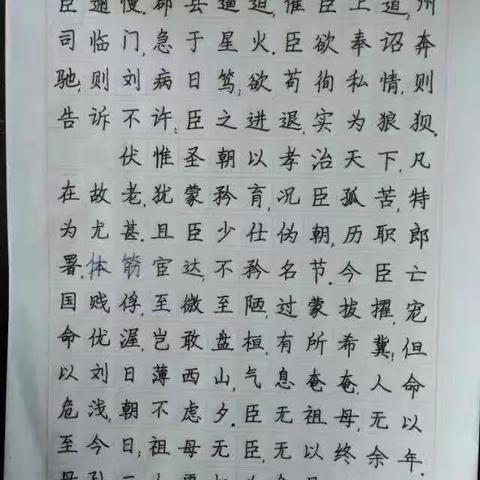 臣逋慢;郡县逼迫,催臣上道;州
司临门,急于星火.臣欲奉诏奔
驰,则刘病日笃;欲苟徇私情,则
告诉不许;臣之进退,实为狼狈.
伏惟圣朝以孝治天下,凡
在故老,犹蒙矜育,况臣孤苦,特
为尤甚.且臣少仕伪朝,历职郎
署,体筋宦达,不矜名节.今臣亡
国贱俘,至微至陋,过蒙拔擢,宠
命优渥,岂敢盘桓,有所希冀!但
以刘日薄西山,气息奄奄,人命
危浅,朝不虑夕.臣无祖母,无以
至今日;祖母无臣,无以终余年.